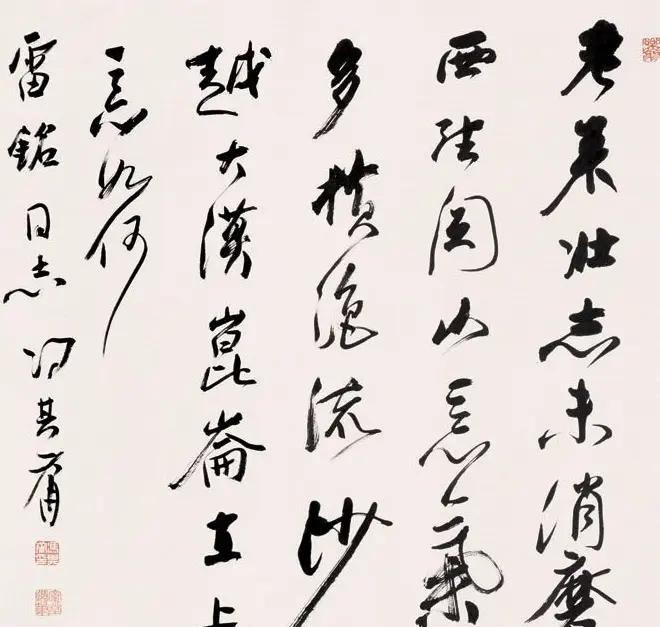 老来壮志未消磨
西望关山意气
多横绝流沙
越大漠崑崙直上
意如何
雷铭同志 冯其庸